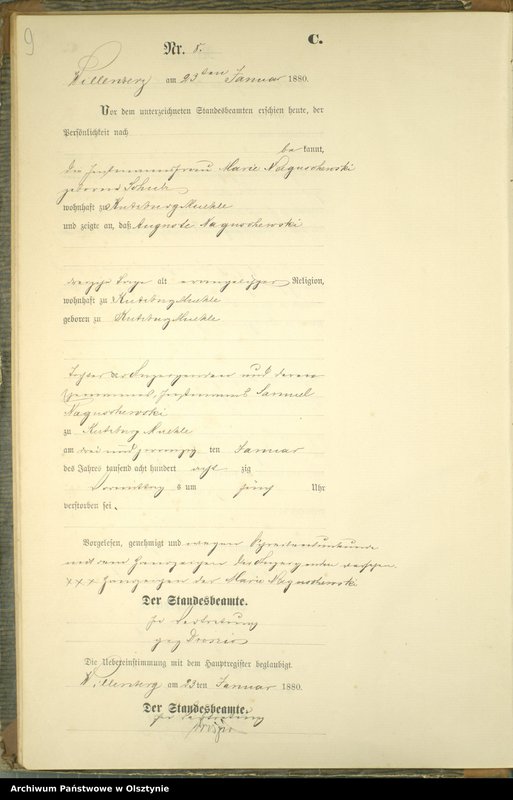 9
C.
Nr. 8.
Willenberg am 23ten Januar 1880.
Vor dem unterzeichneten Standesbeamten erschien heute, der
Persönlichkeit nach
be kannt,
die Instmannsfrau Marie Naguschewski
geborene Schulz
wohnhaft zu Kutzburg Muehle
und zeigte an, daß Auguste Naguschewski
Tage alt evangelischer Religion,
wohnhaft zu Kutzburg Muehle
geboren zu Kutzburg Muehle
Tochter der Anzeigenden und deren
Ehemannes, Instmanns Samuel
Naguschewski
zu Kutzburg Muehle
am drei und zwanzig ten Januar
des Jahres tausend acht hundert acht zig
Vormittag s um fünf Uhr
verstorben sei.
Vorgelesen, genehmigt und wegen Schreibensunkunde
mit den Handzeichen der Anzeigenden versehen.
xxx Handzeichen der Marie Naguschewski
Der Standesbeamte.
In Vertretung
gez
Die Uebereinstimmung mit dem Hauptregister beglaubigt.
Willenberg am 23ten Januar 1880.
Der Standesbeamte.
In Vertretung
Archiwum Państwowe w Olsztynie